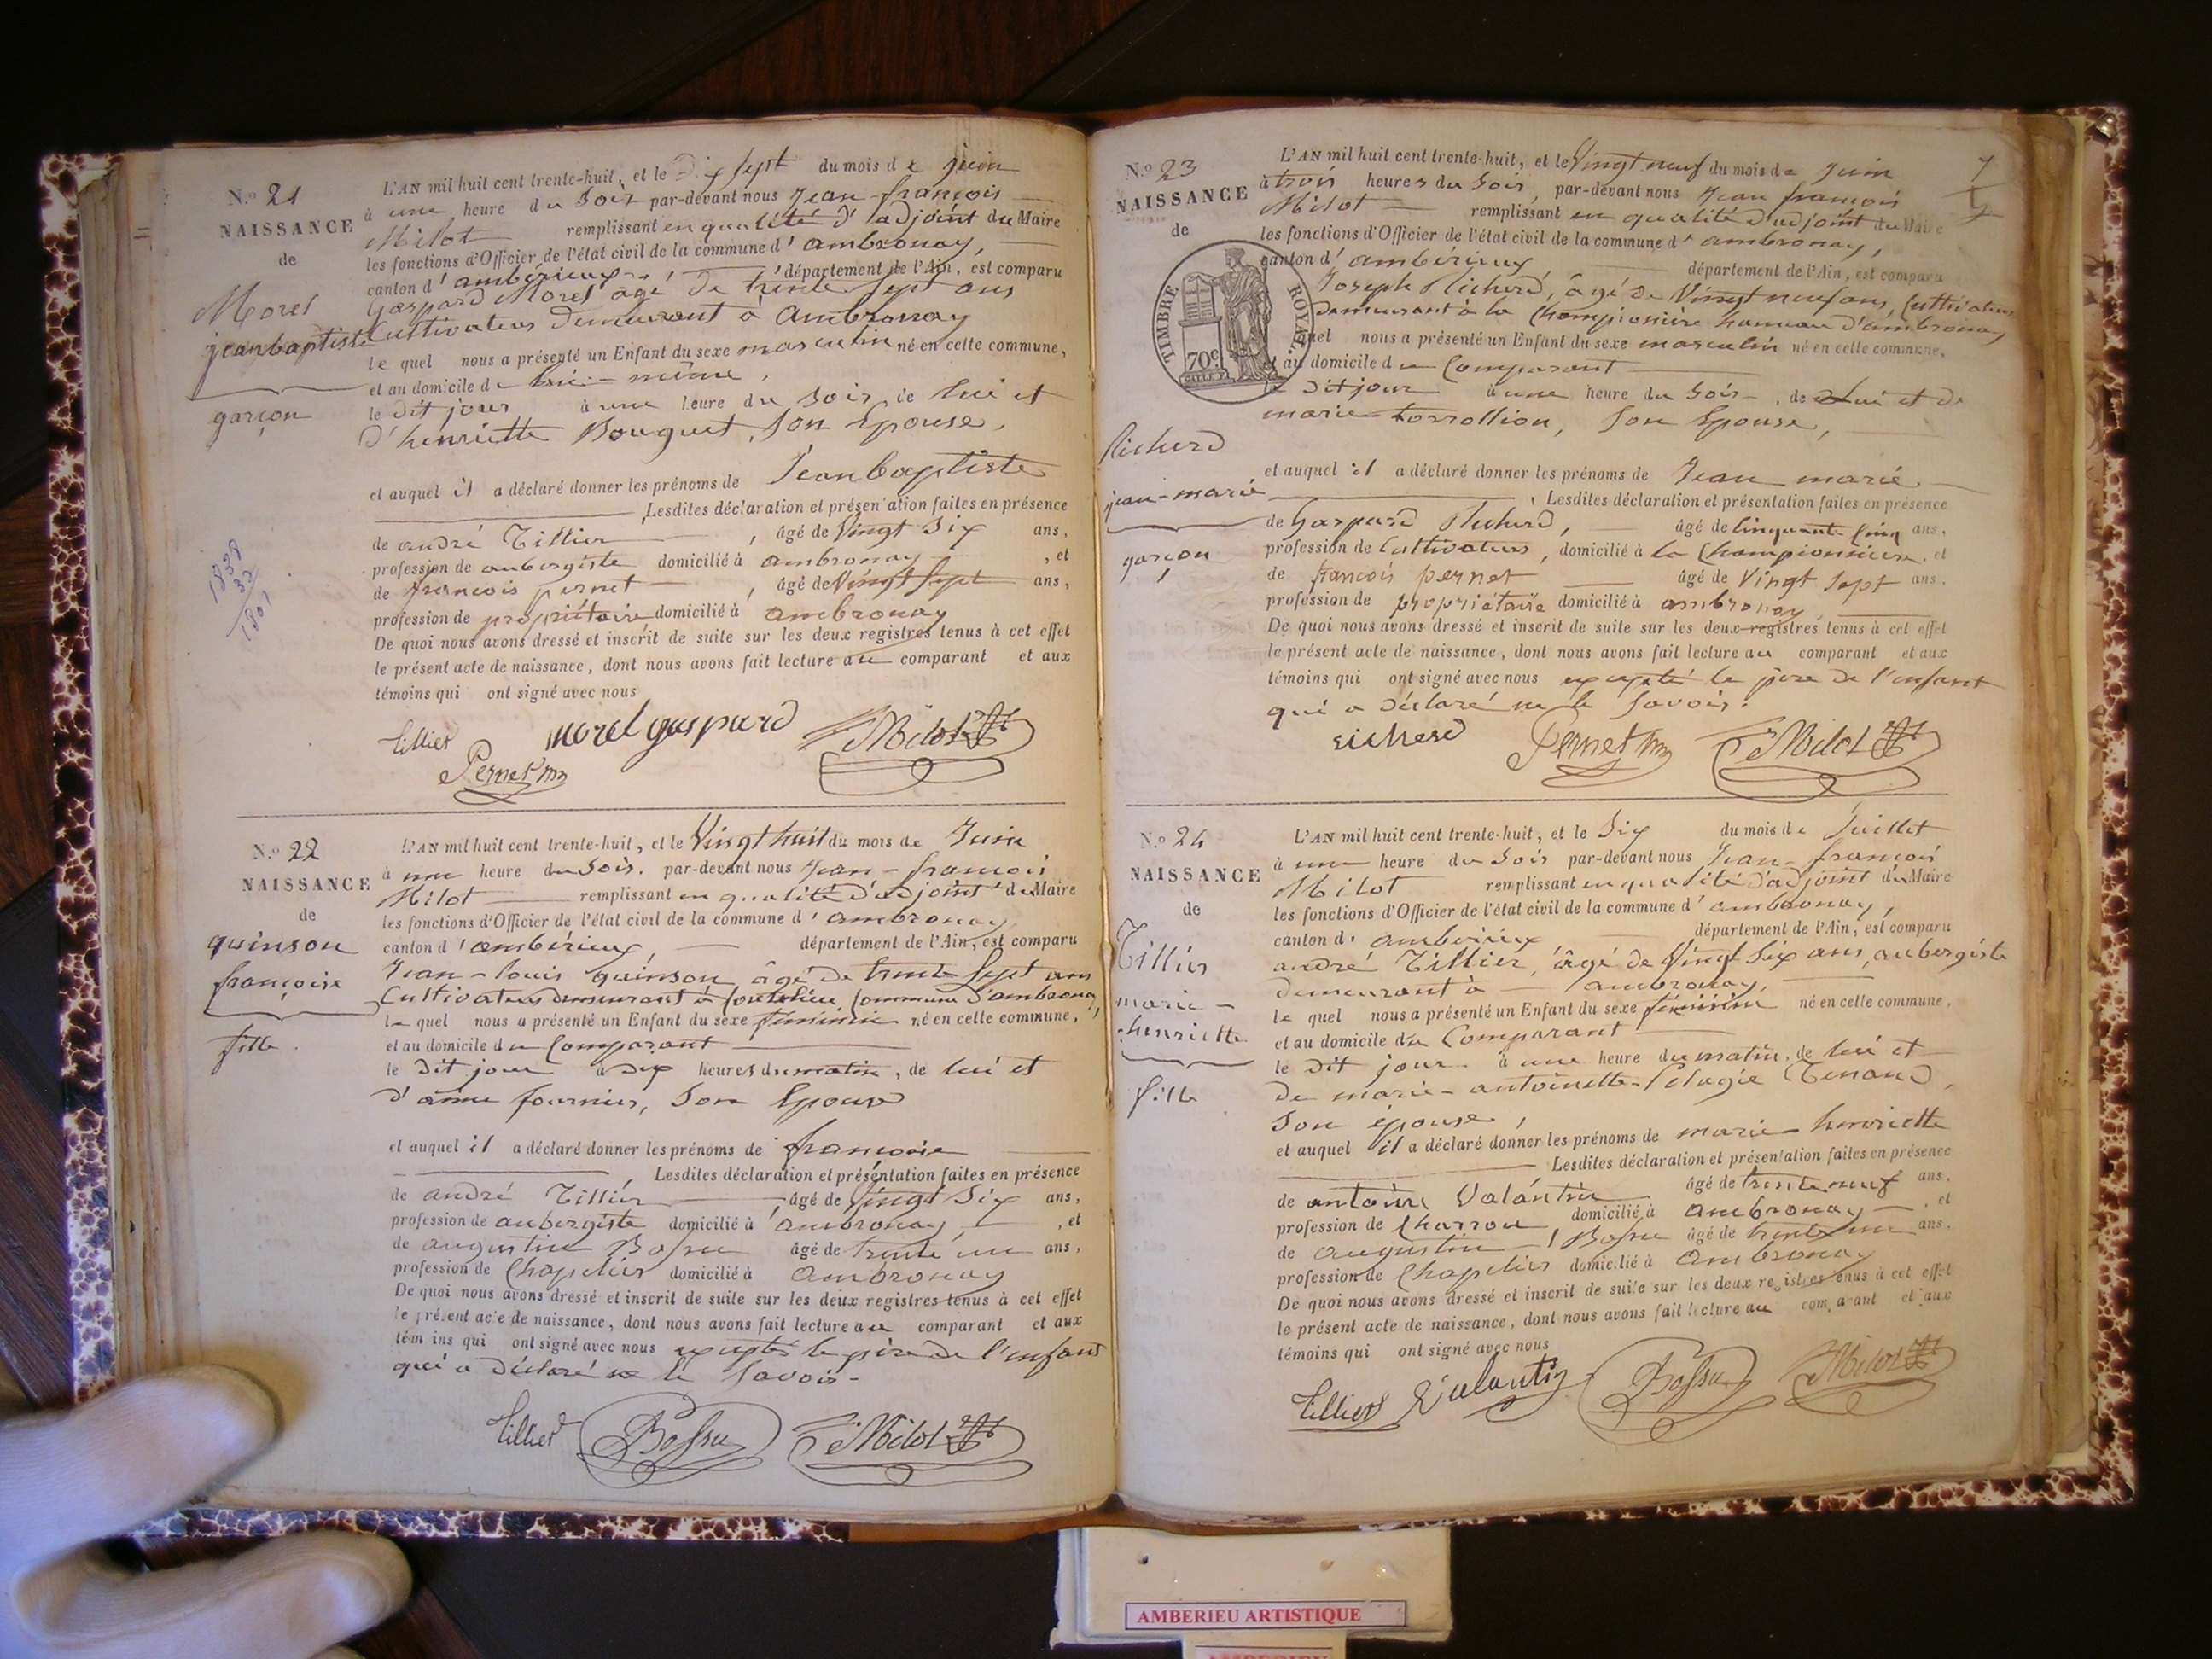 N.º 21
NAISSANCE
de
Morel
jean baptiste
garçon
L'AN mil huit cent trente-huit, et le Dix Sept du mois de Juin
à une heure du Soir par-devant nous Jean françois
Milot remplissant en qualité d'adjoint du Maire
les fonctions d'Officier de l'état civil de la commune d'ambronay,
canton d'ambérieux département de l'Ain, est comparu
Gaspard Morel âgé de trente Sept ans
Cultivateur demeurant à Ambronay
le quel nous a présenté un Enfant du sexe masculin né en cette commune,
et au domicile de lui-même,
le dit jour à une heure du Soir, de lui et
d'henriette Bouquet, Son Epouse,
et auquel il a déclaré donner les prénoms de Jean baptiste
Lesdites déclaration et présentation faites en présence
de andré Tillier, âgé de Vingt Six ans,
profession de aubergiste domicilié à ambronay, et
de françois pernet, âgé de Vingt Sept ans,
profession de propriétaire domicilié à ambronay
De quoi nous avons dressé et inscrit de suite sur les deux registres tenus à cet effet
le présent acte de naissance, dont nous avons fait lecture au comparant et aux
témoins qui ont signé avec nous
tillier morel gaspard Milot
Pernet
1838
37
1801
N.º 22
NAISSANCE
de
quinson
françoise
fille
L'AN mil huit cent trente-huit, et le Vingt huit du mois de Juin
à une heure du Soir. par-devant nous Jean-françois
Milot remplissant en qualité d'adjoint du Maire
les fonctions d'Officier de l'état civil de la commune d'ambronay
canton d'ambérieux département de l'Ain, est comparu
Jean-louis quinson âgé de trente Sept ans
Cultivateur demeurant à Commune d'ambronay,
le quel nous a présenté un Enfant du sexe féminin né en cette commune,
et au domicile du Comparant
le dit jour à dix heures du matin, de lui et
d'anne fournier, Son Epouse
et auquel il a déclaré donner les prénoms de françoise
Lesdites déclaration et présentation faites en présence
de andré Tillier, âgé de Vingt Six ans,
profession de aubergiste domicilié à ambronay, et
de augustin Bossu âgé de trente un ans,
profession de Chapelier domicilié à Ambronay
De quoi nous avons dressé et inscrit de suite sur les deux registres tenus à cet effet
le présent acte de naissance, dont nous avons fait lecture au comparant et aux
témoins qui ont signé avec nous excepté le père de l'enfant
qui a déclaré ne le Savoir.
tillier Bossu Milot
7
N.º 23
NAISSANCE
de
TIMBRE ROYAL
70c
Richerd
jean-marie
garçon
L'AN mil huit cent trente-huit, et le Vingt neuf du mois de Juin
à trois heures du Soir, par-devant nous Jean françois
Milot remplissant en qualité d'adjoint du Maire
les fonctions d'Officier de l'état civil de la commune d'ambronay,
canton d'ambérieux département de l'Ain, est comparu
Joseph Richerd, âgé de Vingt neuf ans, Cultivateur
demeurant à la Championière hameau d'ambronay
quel nous a présenté un Enfant du sexe masculin né en cette commune,
au domicile du Comparant
le Dit jour à une heure du Soir, de Lui et de
marie torrollion, Son Epouse,
et auquel il a déclaré donner les prénoms de Jean marie
Lesdites déclaration et présentation faites en présence
de Gaspard Richerd, âgé de Cinquante Cinq ans,
profession de Cultivateur, domicilié à la Championniere, et
de françois pernet âgé de Vingt Sept ans,
profession de propriétaire domicilié à ambronay
De quoi nous avons dressé et inscrit de suite sur les deux registres tenus à cet effet
le présent acte de naissance, dont nous avons fait lecture au comparant et aux
témoins qui ont signé avec nous excepté le père de l'enfant
qui a déclaré ne le Savoir.
richerd Pernet Milot
N.º 24
NAISSANCE
de
Tillier
marie-
henriette
fille
L'AN mil huit cent trente-huit, et le Six du mois de Juillet
à une heure du Soir par-devant nous Jean-françois
Milot remplissant en qualité d'adjoint du Maire
les fonctions d'Officier de l'état civil de la commune d'ambronay,
canton d'ambérieux département de l'Ain, est comparu
andré Tillier, âgé de Vingt Six ans, aubergiste
demeurant à ambronay,
le quel nous a présenté un Enfant du sexe féminin né en cette commune,
et au domicile du Comparant
le dit jour à une heure du matin, de lui et
de marie-antoinette-Pelagie Tenand,
Son épouse,
et auquel il a déclaré donner les prénoms de marie henriette
Lesdites déclaration et présentation faites en présence
de antoine Valantin âgé de trente neuf ans,
profession de Charron, domicilié à ambronay, et
de augustin Bossu âgé de trente un ans,
profession de Chapelier domicilié à Ambronay
De quoi nous avons dressé et inscrit de suite sur les deux registres tenus à cet effet
le présent acte de naissance, dont nous avons fait lecture au comparant et aux
témoins qui ont signé avec nous
tillier Valantin Bossu Milot
AMBERIEU ARTISTIQUE
AMBERIEU